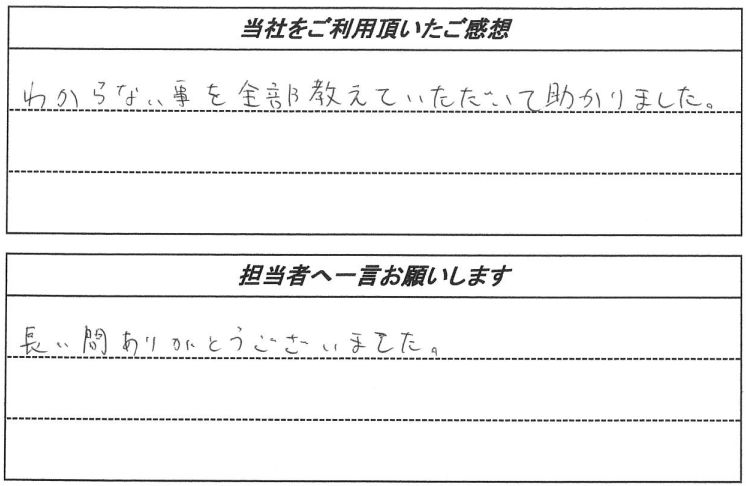 当社をご利用頂いたご感想
わからない事を全部教えていただいて助かりました。
担当者へ一言お願いします
長い間ありがとうございました。